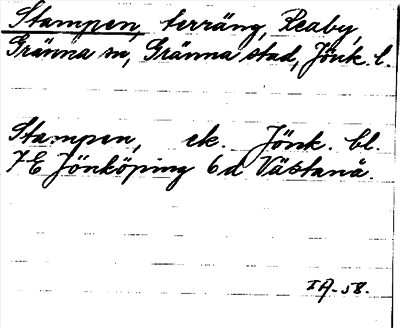 Stampen, terräng, Reaby,
Gränna sn, Gränna stad, Jönk. l.
Stampen, ek. Jönk. bl.
7E Jönköping 6d Västanå.
IA-58.